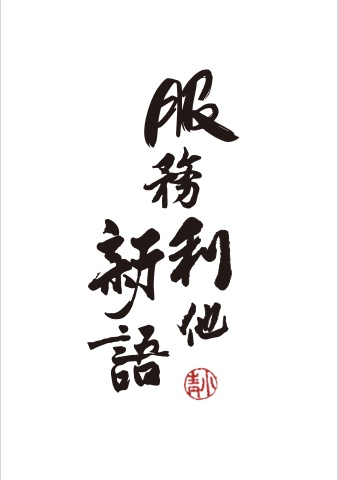 服務利他
新語